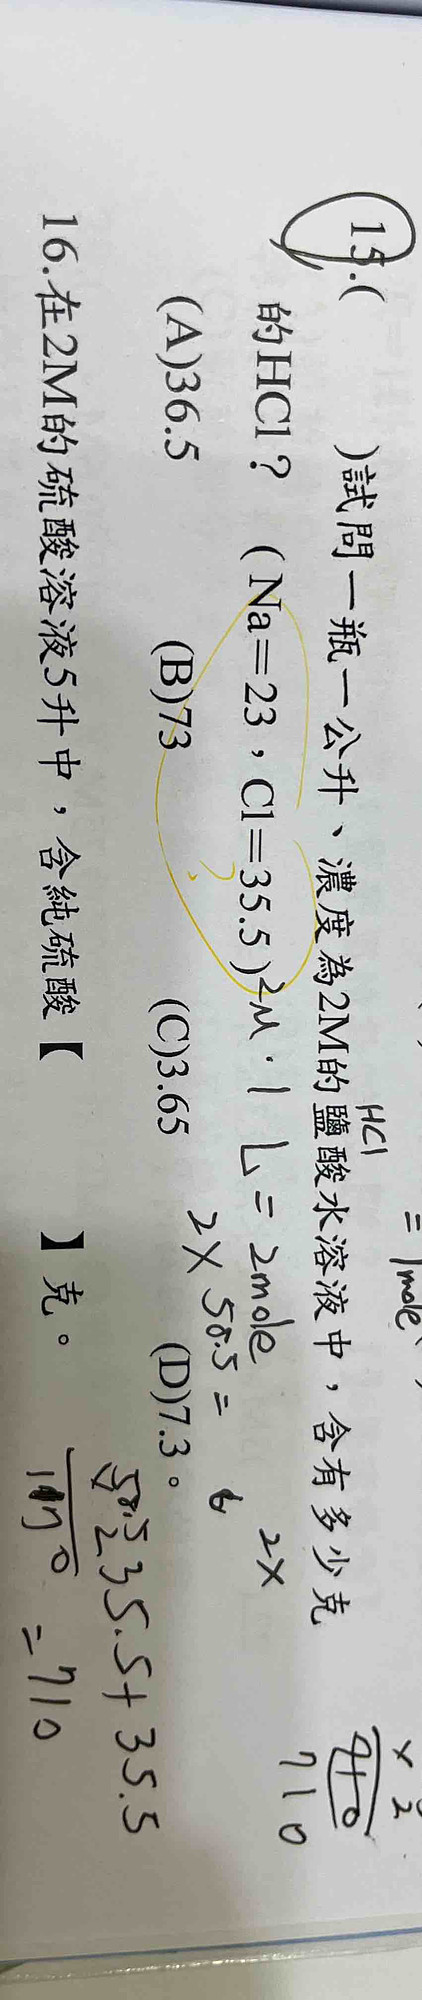 15.( )試問一瓶一公升、濃度為2M的鹽酸水溶液中，含有多少克
HCl
的HCl？（Na＝23，Cl＝35.5）
(A)36.5 (B)73 (C)3.65 (D)7.3。
16.在2M的硫酸溶液5升中，含純硫酸【 】克。
= 1mole
2M·1L = 2mole
2X
2X 50.5 =
35.5+35.5
= 710
X 2
710